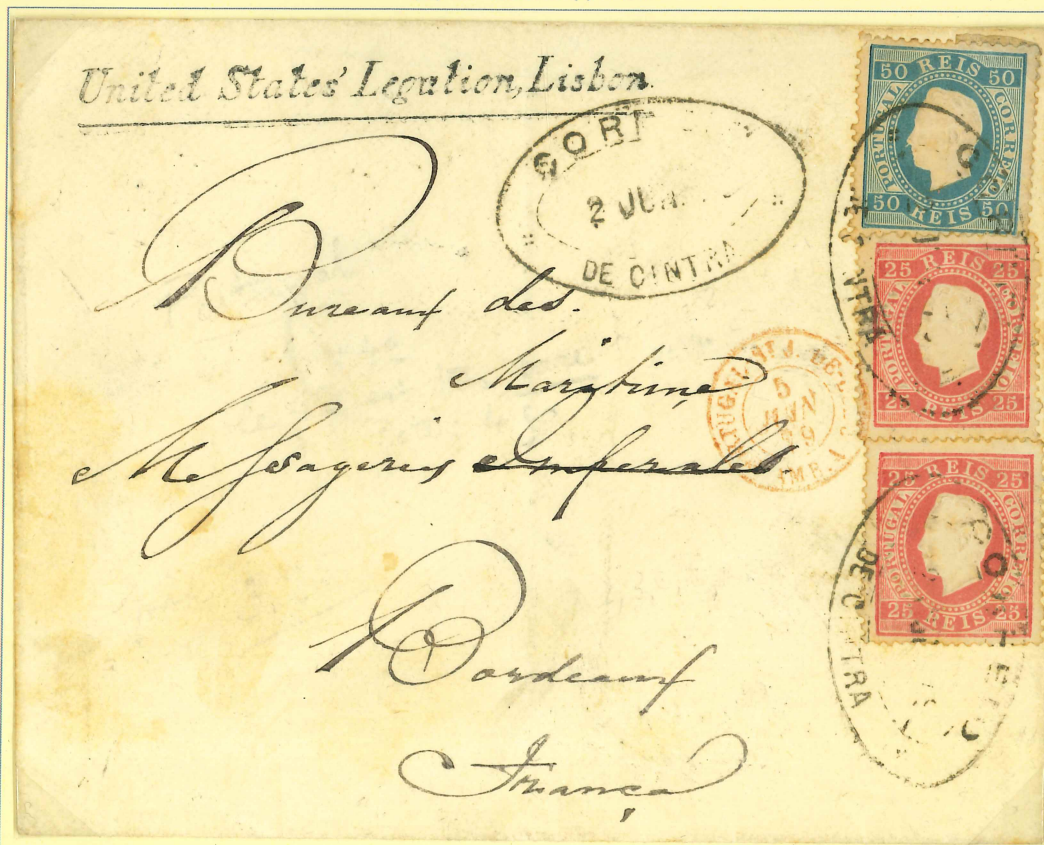 United States' Legation, Lisbon
COR
2 JUN
DE CINTRA
50 REIS 50
PORTUGAL
CORREIO
50 REIS 50
25 REIS 25
PORTUGAL
CORREIO
25 REIS 25
25 REIS 25
PORTUGAL
CORREIO
25 REIS 25
DE CINTRA
5
JUIN
Bureaux des
Maritime
Messageries Imperiales
Bordeaux
França